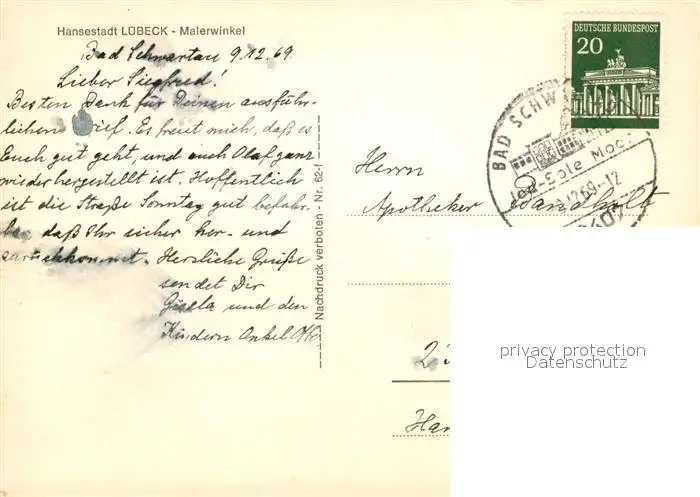 Hansestadt LÜBECK - Malerwinkel
Bad Schwartau 9.12.69
Lieber Siegfried!
Besten Dank für Deinen ausführ-
lichen Brief. Es freut mich, daß es
Euch gut geht, und auch Olaf ganz
wiederhergestellt ist. Hoffentlich
ist die Straße Sonntag gut befahr-
bar, daß Ihr sicher her- und
zurückkommt. Herzliche Grüße
sendet Dir
Gisela und den
Kindern Onkel Otto
Nachdruck verboten - Nr. 62-f
DEUTSCHE BUNDESPOST
20
BAD SCHW
Jod-Sole Moor
12.69-12
Herrn
Apotheker
privacy protection
Datenschutz